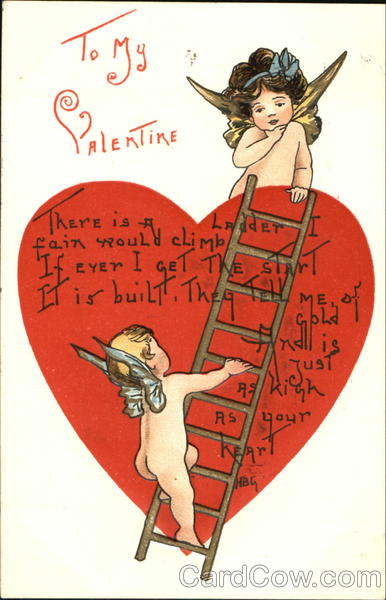 To My
Valentine
There is a Ladder I
fain would climb
If ever I get the start
It is built, they tell me, of
gold
And is
just
as high
as your
heart
HBG
CardCow.com